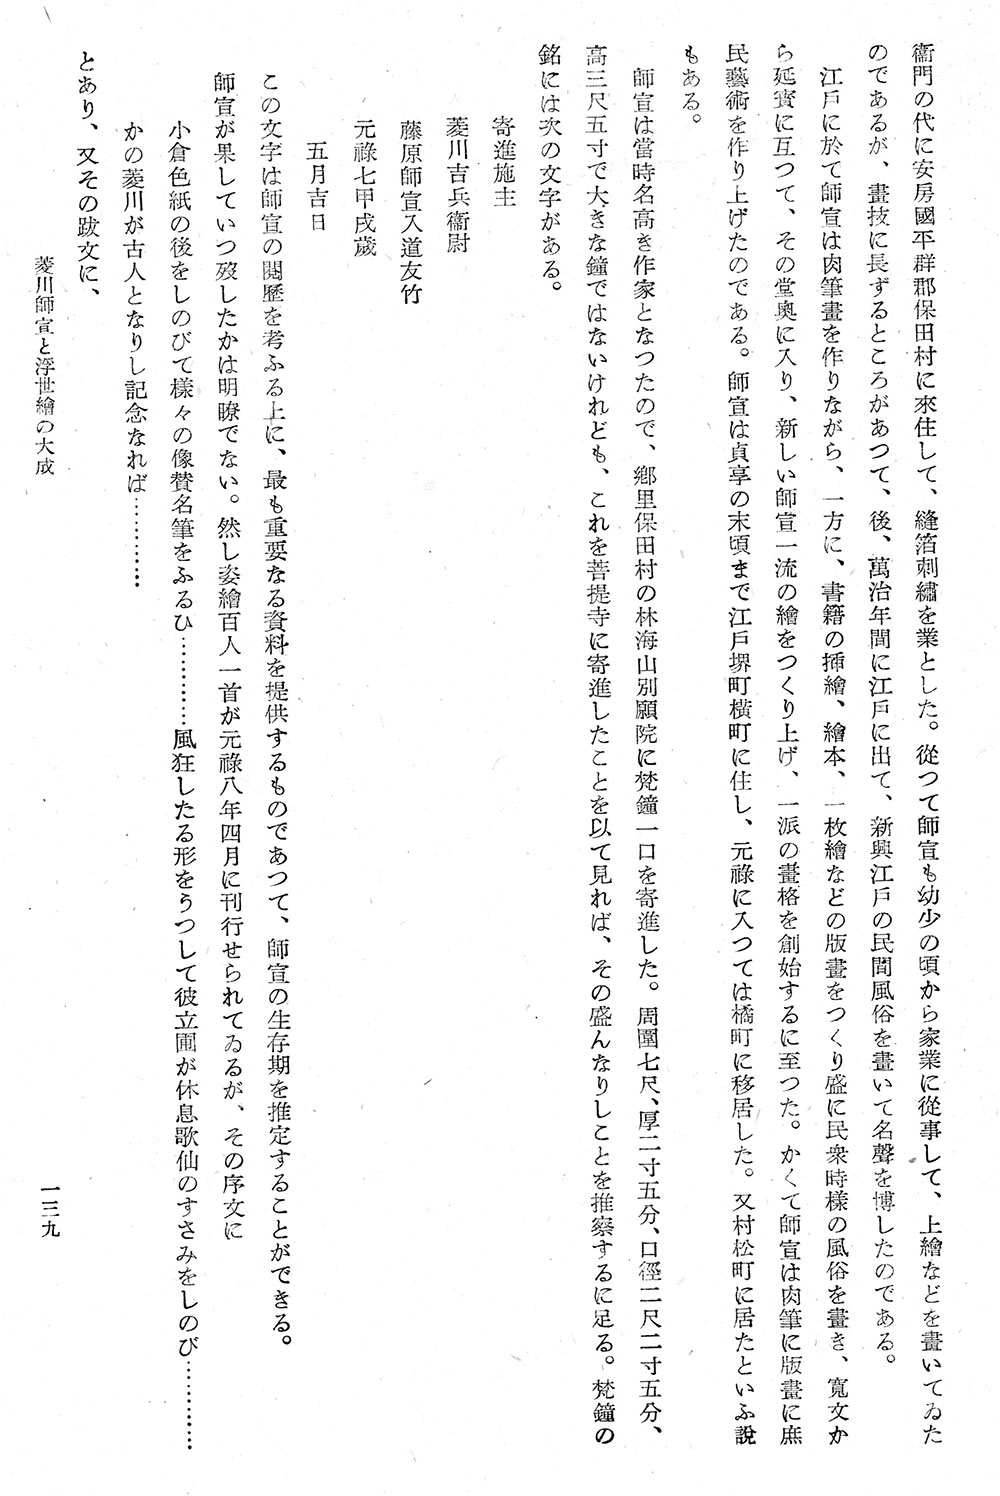 衞門の代に安房國平群郡保田村に來住して、縫箔刺繡を業とした。從つて師宣も幼少の頃から家業に從事して、上繪などを畫いてゐた
のであるが、畫技に長ずるところがあつて、後、萬治年間に江戶に出て、新興江戶の民間風俗を畫いて名聲を博したのである。
江戶に於て師宣は肉筆畫を作りながら、一方に、書籍の揷繪、繪本、一枚繪などの版畫をつくり盛に民衆時樣の風俗を畫き、寬文か
ら延寶に亙つて、その堂奥に入り、新しい師宣一流の繪をつくり上げ、一派の畫格を創始するに至つた。かくて師宣は肉筆に版畫に庶
民藝術を作り上げたのである。師宣は貞享の末頃まで江戶堺町橫町に住し、元祿に入つては橘町に移居した。又村松町に居たといふ說
もある。
師宣は當時名高き作家となつたので、鄕里保田村の林海山別願院に梵鐘一口を寄進した。周圍七尺、厚二寸五分、口徑二尺二寸五分、
高三尺五寸で大きな鐘ではないけれども、これを菩提寺に寄進したことを以て見れば、その盛んなりしことを推察するに足る。梵鐘の
銘には次の文字がある。
寄進施主
菱川吉兵衞尉
藤原師宣入道友竹
元祿七甲戌歲
五月吉日
この文字は師宣の閱歷を考ふる上に、最も重要なる資料を提供するものであつて、師宣の生存期を推定することができる。
師宣が果していつ歿したかは明瞭でない。然し姿繪百人一首が元祿八年四月に刊行せられてゐるが、その序文に
小倉色紙の後をしのびて樣々の像賛名筆をふるひ…………風狂したる形をうつして彼立圃が休息歌仙のすさみをしのび…………
かの菱川が古人となりし記念なれば…………
とあり、又その跋文に、
菱川師宣と浮世繪の大成
一三九